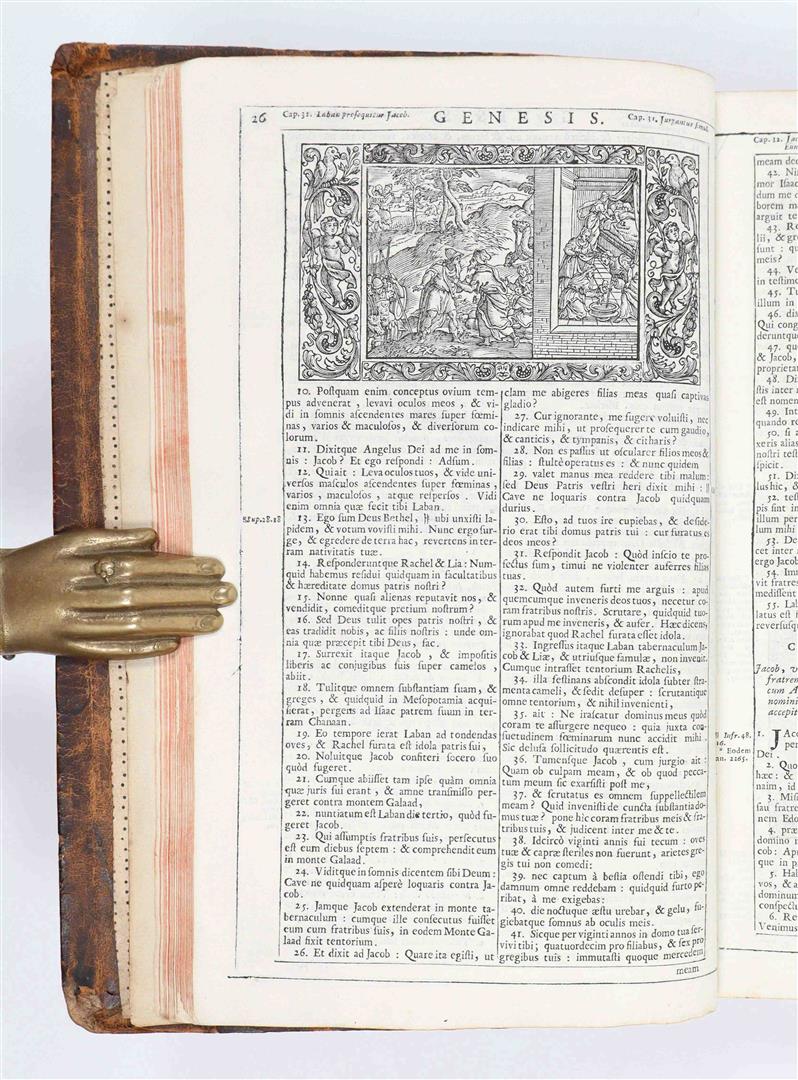 26
Cap. 31. Laban prosequitur Jacob.
GENESIS.
Cap. 31. Jurgantur simul.
10. Postquam enim conceptus ovium tem-
pus advenerat, levavi oculos meos, & vi-
di in somnis ascendentes mares super fœmi-
nas, varios & maculosos, & diversorum co-
lorum.
11. Dixitque Angelus Dei ad me in som-
nis : Jacob? Et ego respondi : Adsum.
12. Qui ait : Leva oculos tuos, & vide uni-
versos masculos ascendentes super fœminas,
varios, maculosos, atque respersos. Vidi
enim omnia quæ fecit tibi Laban.
‖ Sup. 28. 18
13. Ego sum Deus Bethel, ‖ ubi unxisti la-
pidem, & votum vovisti mihi. Nunc ergo sur-
ge, & egredere de terra hac, revertens in ter-
ram nativitatis tuæ.
14. Responderuntque Rachel & Lia : Num-
quid habemus residui quidquam in facultatibus
& hæreditate domus patris nostri?
15. Nonne quasi alienas reputavit nos, &
vendidit, comeditque pretium nostrum?
16. Sed Deus tulit opes patris nostri, &
eas tradidit nobis, ac filiis nostris : unde om-
nia quæ præcepit tibi Deus, fac.
17. Surrexit itaque Jacob, & impositis
liberis ac conjugibus suis super camelos,
abiit.
18. Tulitque omnem substantiam suam, &
greges, & quidquid in Mesopotamia acqui-
sierat, pergens ad Isaac patrem suum in ter-
ram Chanaan.
19. Eo tempore ierat Laban ad tondendas
oves, & Rachel furata est idola patris sui,
20. Noluitque Jacob confiteri socero suo
quòd fugeret.
21. Cumque abiisset tam ipse quàm omnia
quæ juris sui erant, & amne transmisso per-
geret contra montem Galaad,
22. nuntiatum est Laban die tertio, quòd fu-
geret Jacob.
23. Qui assumptis fratribus suis, persecutus
est eum diebus septem : & comprehendit eum
in monte Galaad.
24. Viditque in somnis dicentem sibi Deum :
Cave ne quidquam asperè loquaris contra Ja-
cob.
25. Jamque Jacob extenderat in monte ta-
bernaculum : cumque ille consecutus fuisset
eum cum fratribus suis, in eodem Monte Ga-
laad fixit tentorium.
26. Et dixit ad Jacob : Quare ita egisti, ut
clam me abigeres filias meas quasi captivas
gladio?
27. Cur ignorante, me fugere voluisti, nec
indicare mihi, ut prosequerer te cum gaudio,
& canticis, & tympanis, & citharis?
28. Non es passus ut oscularer filios meos &
filias : stultè operatus es : & nunc quidem
29. valet manus mea reddere tibi malum:
sed Deus Patris vestri heri dixit mihi : ‖
Cave ne loquaris contra Jacob quidquam
durius.
30. Esto, ad tuos ire cupiebas, & deside-
rio erat tibi domus patris tui : cur furatus es
deos meos?
31. Respondit Jacob : Quòd inscio te pro-
fectus sum, timui ne violenter auferres filias
tuas.
32. Quòd autem furti me arguis : apud
quemcumque inveneris deos tuos, necetur co-
ram fratribus nostris. Scrutare, quidquid tuo-
rum apud me inveneris, & aufer. Hæc dicens,
ignorabat quod Rachel furata esset idola.
33. Ingressus itaque Laban tabernaculum Ja-
cob & Liæ, & utriusque famulæ, non invenit.
Cumque intrasset tentorium Rachelis,
34. illa festinans abscondit idola subter stra-
menta cameli, & sedit desuper : scrutantique
omne tentorium, & nihil invenienti,
35. ait : Ne irascatur dominus meus quòd
coram te assurgere nequeo : quia juxta con-
suetudinem fœminarum nunc accidit mihi.
Sic delusa sollicitudo quærentis est.
36. Tumensque Jacob, cum jurgio ait :
Quam ob culpam meam, & ob quod pecca-
tum meum sic exarsisti post me,
37. & scrutatus es omnem suppellectilem
meam? Quid invenisti de cuncta substantia do-
mus tuæ? pone hic coram fratribus meis & fra-
tribus tuis, & judicent inter me & te.
38. Idcircò viginti annis fui tecum : oves
tuæ & capræ steriles non fuerunt, arietes gre-
gis tui non comedi:
39. nec captum à bestia ostendi tibi, ego
damnum omne reddebam : quidquid furto pe-
ribat, à me exigebas:
40. die noctuque æstu urebar, & gelu, fu-
giebatque somnus ab oculis meis.
41. Sicque per viginti annos in domo tua ser-
vivi tibi; quatuordecim pro filiabus, & sex pro
gregibus tuis : immutasti quoque mercedem
meam
Cap. 32.
meam dec
42. Ni
mor Isaac
dum me d
borem m
arguit te
43. Re
lii, & gre
sunt : qu
meis?
44. Ve
in testime
45. Tu
illum in
46. dix
Qui cong
deruntque
47. qu
& Jacob,
proprietat
48. Di
stis inter
est nomen
49. Int
quando re
50. si a
xeris alias
nostri test
spicit.
51. Di
lus hic, &
52. test
pis sint in
illum per
illum m
53. De
cet inter
ergo Jacob
54. Im
fratres
medissent
55. Lab
latus est
reversusqu
C
Jacob, v
fratrem
cum A
nomini
accepit
‖ Infr. 48.
16.
* Eodem
an. 2265.
1. JAco
per
Dei.
2. Quo
hæc : &
naim, id
3. Misi
sau fratre
nem Edo
4. præ
domino
cob : Apu
que in p
5. Hab
vos, & a
dominum
conspectu
6. Re
Venimus